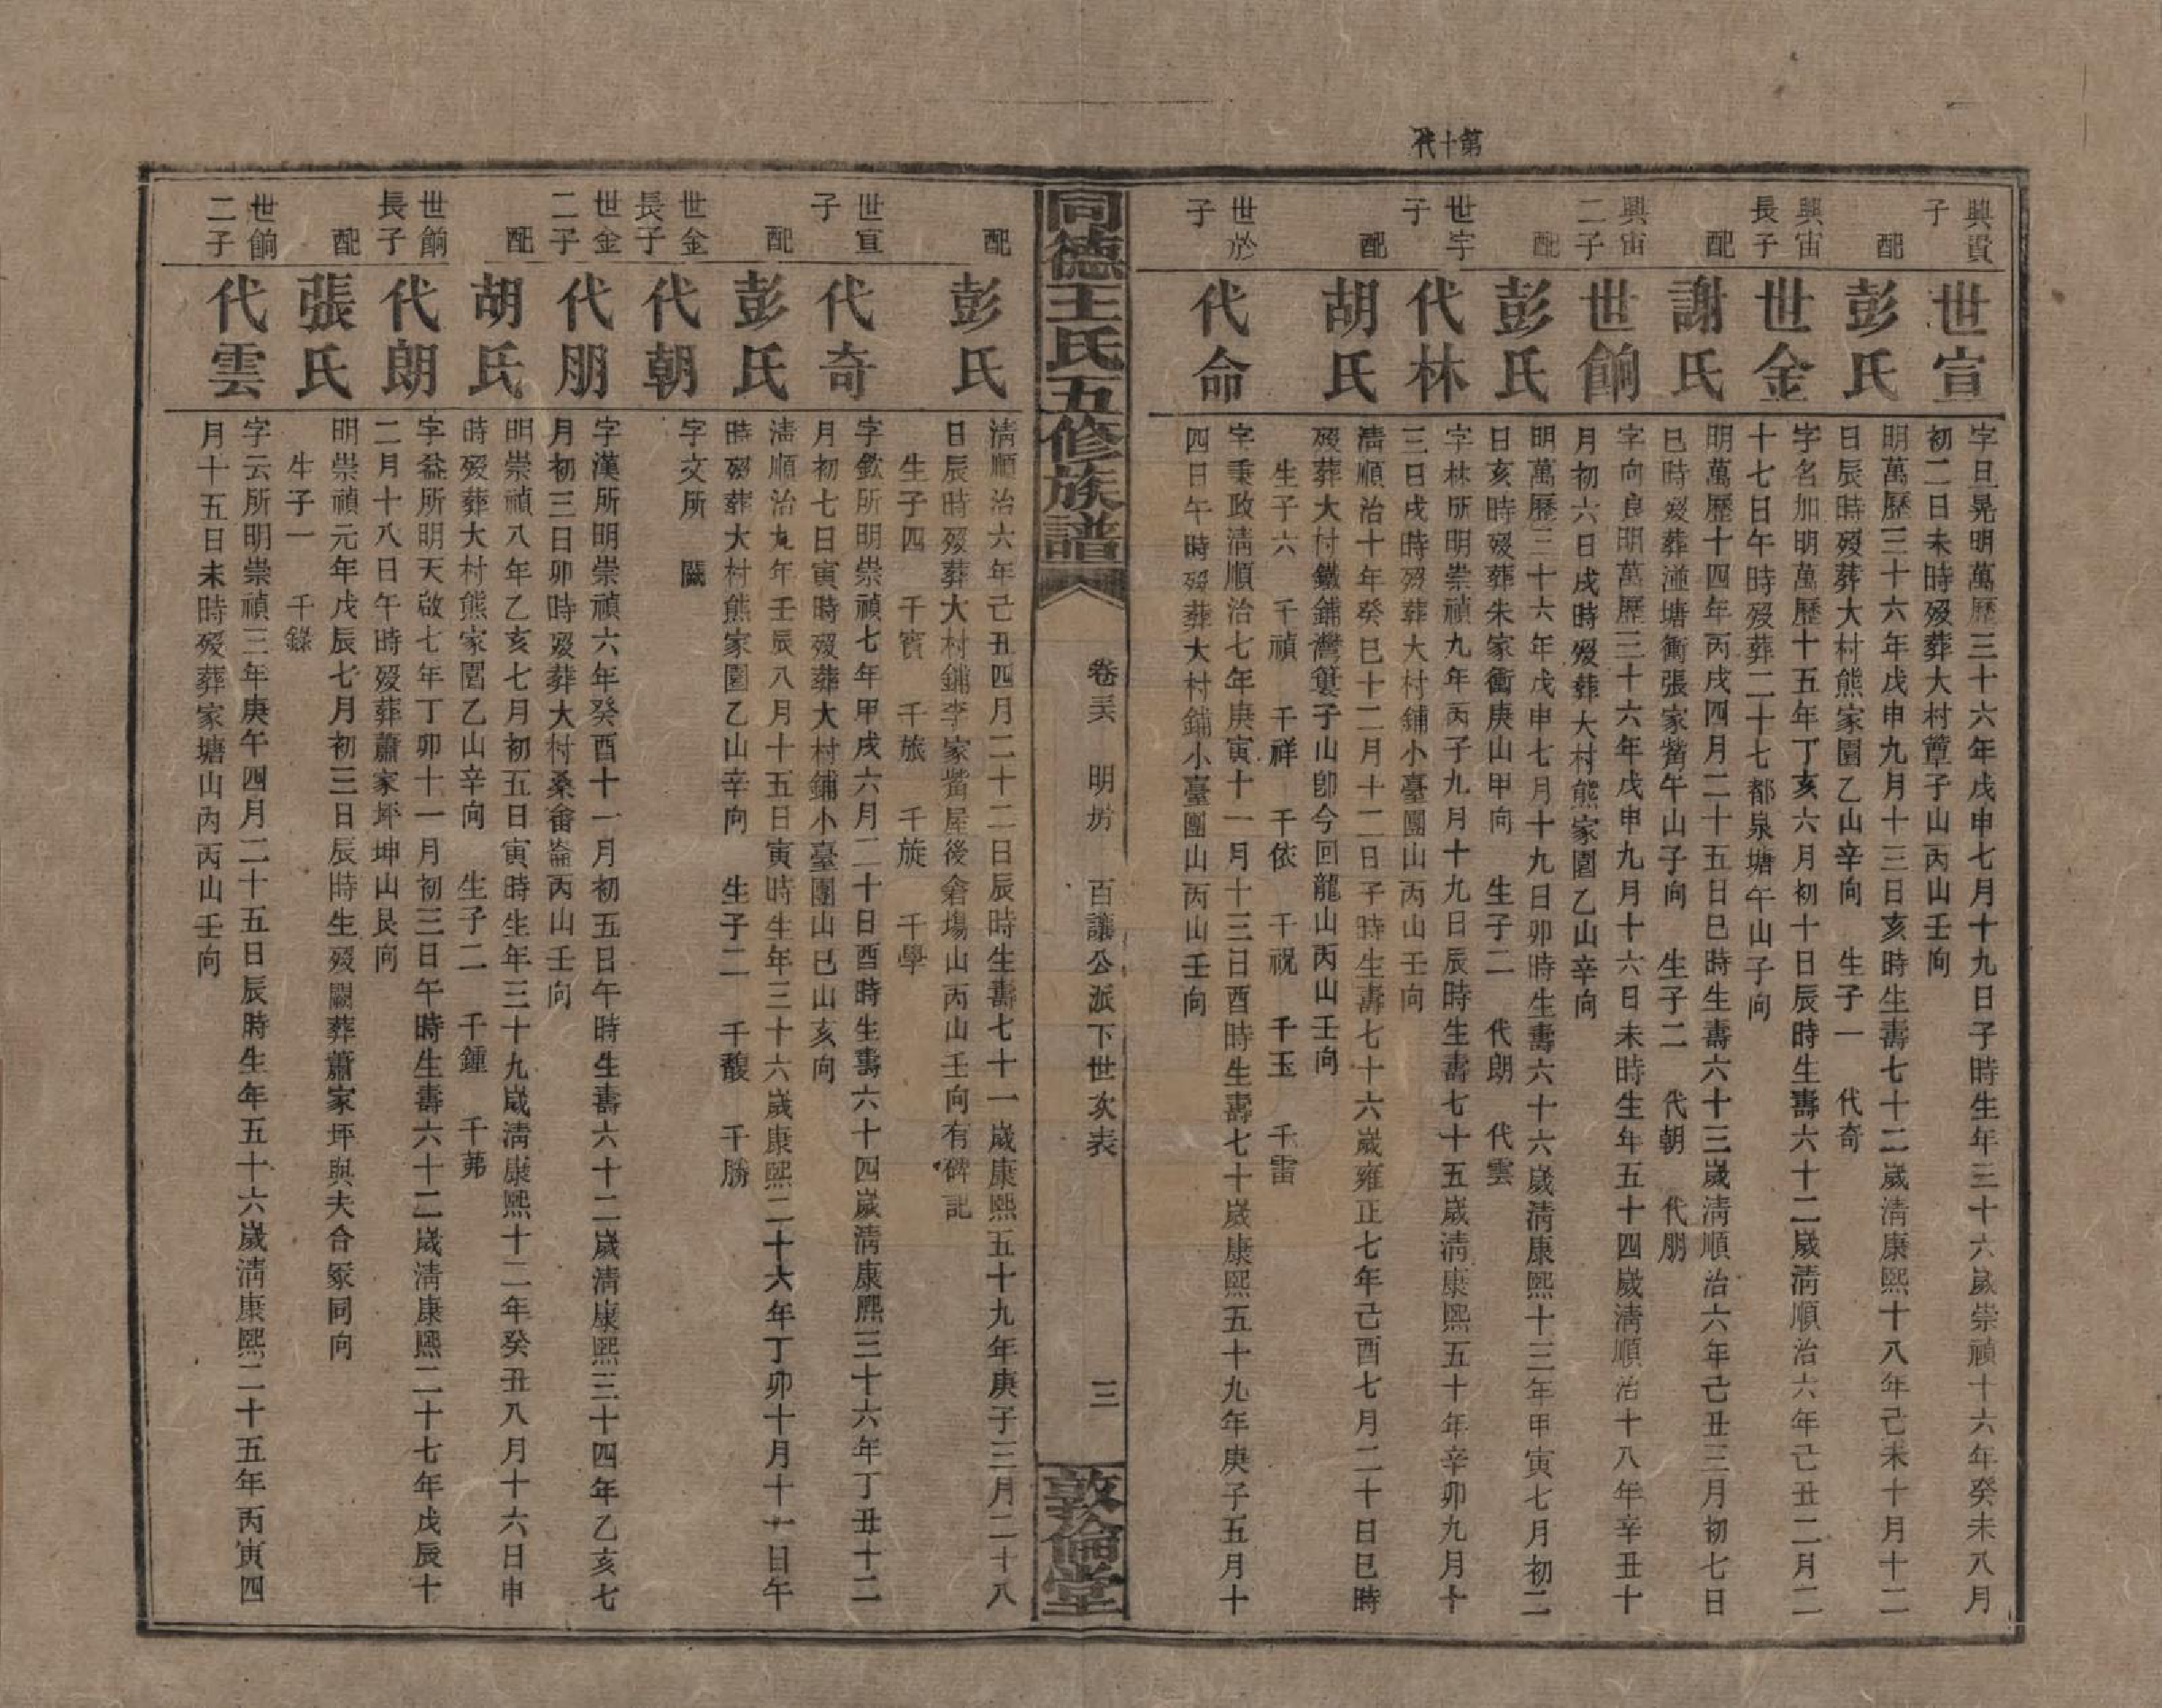 第十代
興貴
子
世宣
字旦晃明萬歷三十六年戊申七月十九日子時生年三十六歲崇禎十六年癸未八月
初二日未時歿葬大村簟子山丙山壬向
配
彭氏
明萬歷三十六年戊申九月十三日亥時生壽七十二歲清康熙十八年己未十月十二
日辰時歿葬大村熊家園乙山辛向 生子一 代奇
興宙
長子
世金
字名加明萬歷十五年丁亥六月初十日辰時生壽六十二歲清順治六年己丑二月二
十七日午時歿葬二十七都泉塘午山子向
配
謝氏
明萬歷十四年丙戌四月二十五日巳時生壽六十三歲清順治六年己丑三月初七日
巳時歿葬湴塘衝張家觜午山子向 生子二 代朝 代朋
興宙
二子
世餉
字向良明萬歷三十六年戊申九月十六日未時生年五十四歲清順治十八年辛丑十
月初六日戌時歿葬大村熊家園乙山辛向
配
彭氏
明萬歷三十六年戊申七月十九日卯時生壽六十六歲清康熙十三年甲寅七月初二
日亥時歿葬朱家衝庚山甲向 生子二 代朗 代雲
世宇
子
代林
字林所明崇禎九年丙子九月十九日辰時生壽七十五歲清康熙五十年辛卯九月十
三日戌時歿葬大村鋪小臺團山丙山壬向
配
胡氏
清順治十年癸巳十二月十二日子時生壽七十六歲雍正七年己酉七月二十日巳時
歿葬大村鐵鋪灣簍子山卽今回龍山丙山壬向
生子六 千禎 千祥 千依 千祝 千玉 千雷
世於
子
代命
字秉政清順治七年庚寅十一月十三日酉時生壽七十歲康熙五十九年庚子五月十
四日午時歿葬大村鋪小臺團山丙山壬向
同德王氏五修族譜
卷三六 明房 百讓公派下世次表
三
敦倫堂
配
彭氏
清順治六年己丑四月二十二日辰時生壽七十一歲康熙五十九年庚子三月二十八
日辰時歿葬大村鋪李家觜屋後倉塲山丙山壬向有碑記
生子四 千賓 千旅 千旋 千學
世宣
子
代奇
字欽所明崇禎七年甲戌六月二十日酉時生壽六十四歲清康熙三十六年丁丑十二
月初七日寅時歿葬大村鋪小臺團山巳山亥向
配
彭氏
清順治九年壬辰八月十五日寅時生年三十六歲康熙二十六年丁卯十月十一日午
時歿葬大村熊家園乙山辛向 生子二 千馥 千勝
世金
長子
代朝
字文所 闕
世金
二子
代朋
字漢所明崇禎六年癸酉十一月初五日午時生壽六十二歲清康熙三十四年乙亥七
月初三日卯時歿葬大村桑畬崙丙山壬向
配
胡氏
明崇禎八年乙亥七月初五日寅時生年三十九歲清康熙十二年癸丑八月十六日申
時歿葬大村熊家園乙山辛向 生子二 千鍾 千茀
世餉
長子
代朗
字益所明天啟七年丁卯十一月初三日午時生壽六十二歲清康熙二十七年戊辰十
二月十八日午時歿葬蕭家坪坤山艮向
配
張氏
明崇禎元年戊辰七月初三日辰時生歿闕葬蕭家坪與夫合冢同向
生子一 千錄
世餉
二子
代雲
字云所明崇禎三年庚午四月二十五日辰時生年五十六歲清康熙二十五年丙寅四
月十五日未時歿葬家塘山內丙山壬向